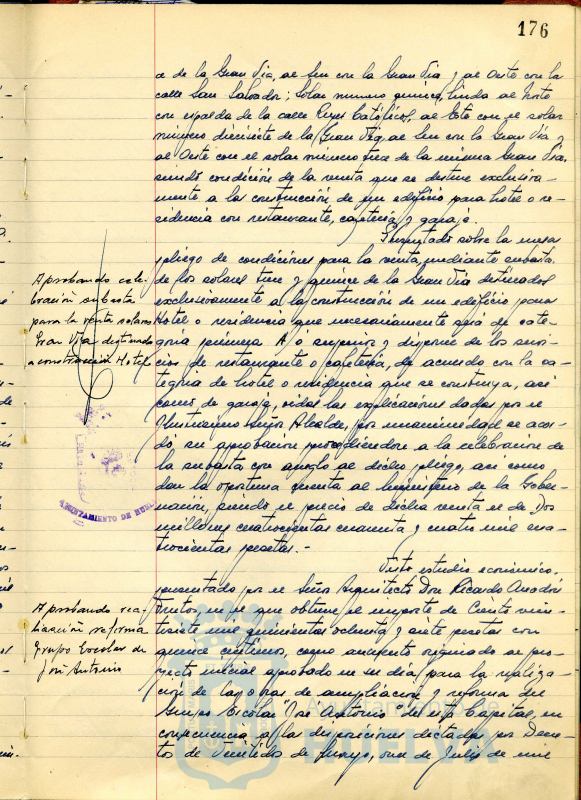 176
e de la Gran Vía, al Sur con la Gran Vía y al Oeste con la
calle San Salvador; Solar número quince, linda al Norte
con espalda de la calle Reyes Católicos, al Este con el solar
número diecisiete de la Gran Vía, al Sur con la Gran Vía y
al Oeste con el solar número trece de la misma Gran Vía,
siendo condición de la venta que se destine exclusiva-
mente a la construcción de un edificio para hotel o re-
sidencia con restaurante, cafetería y garaje.
sobre la mesa
pliego de condiciones para la venta, mediante subasta
de los solares trece y quince de la Gran Vía destinados
exclusivamente a la construcción de un edificio para
Hotel o residencia que necesariamente será de cate-
goría primera A) o superior y dispone de los servi-
cios de restaurante o cafetería, de acuerdo con la ca-
tegoría de hotel o residencia que se construya, así
como de garaje, oidas las explicaciones dadas por el
Ilustrísimo Señor Alcalde, por unanimidad se acor-
dó su aprobación procediéndose a la celebración de
la subasta con arreglo al dicho pliego, así como
dar la oportuna cuenta al Ministerio de la Gober-
nación, siendo el precio de dicha venta el de Dos
millones cuatrocientas cuarenta y cuatro mil cua-
trocientas pesetas.-
Aprobando cele-
bración subasta
para la venta solares
Gran Vía destinado
a construcción Hotel
AYUNTAMIENTO DE HUELVA
Visto estudio económico,
presentado por el Señor Arquitecto Don Ricardo Anadón
Frutos, en el que obtiene el importe de Ciento vein-
tisiete mil quinientas ochenta y siete pesetas con
quince céntimos, como aumento originado al pro-
yecto inicial aprobado en su día, para la realiza-
ción de las obras de ampliación y reforma del
Grupo Escolar José Antonio de esta Capital, en
consecuencia a las disposiciones dictadas por Decre-
tos de Veintidós de Mayo, once de Julio de mil
Aprobando rea-
lización reforma
Grupo Escolar de
José Antonio
Ayuntamiento de
HUELVA